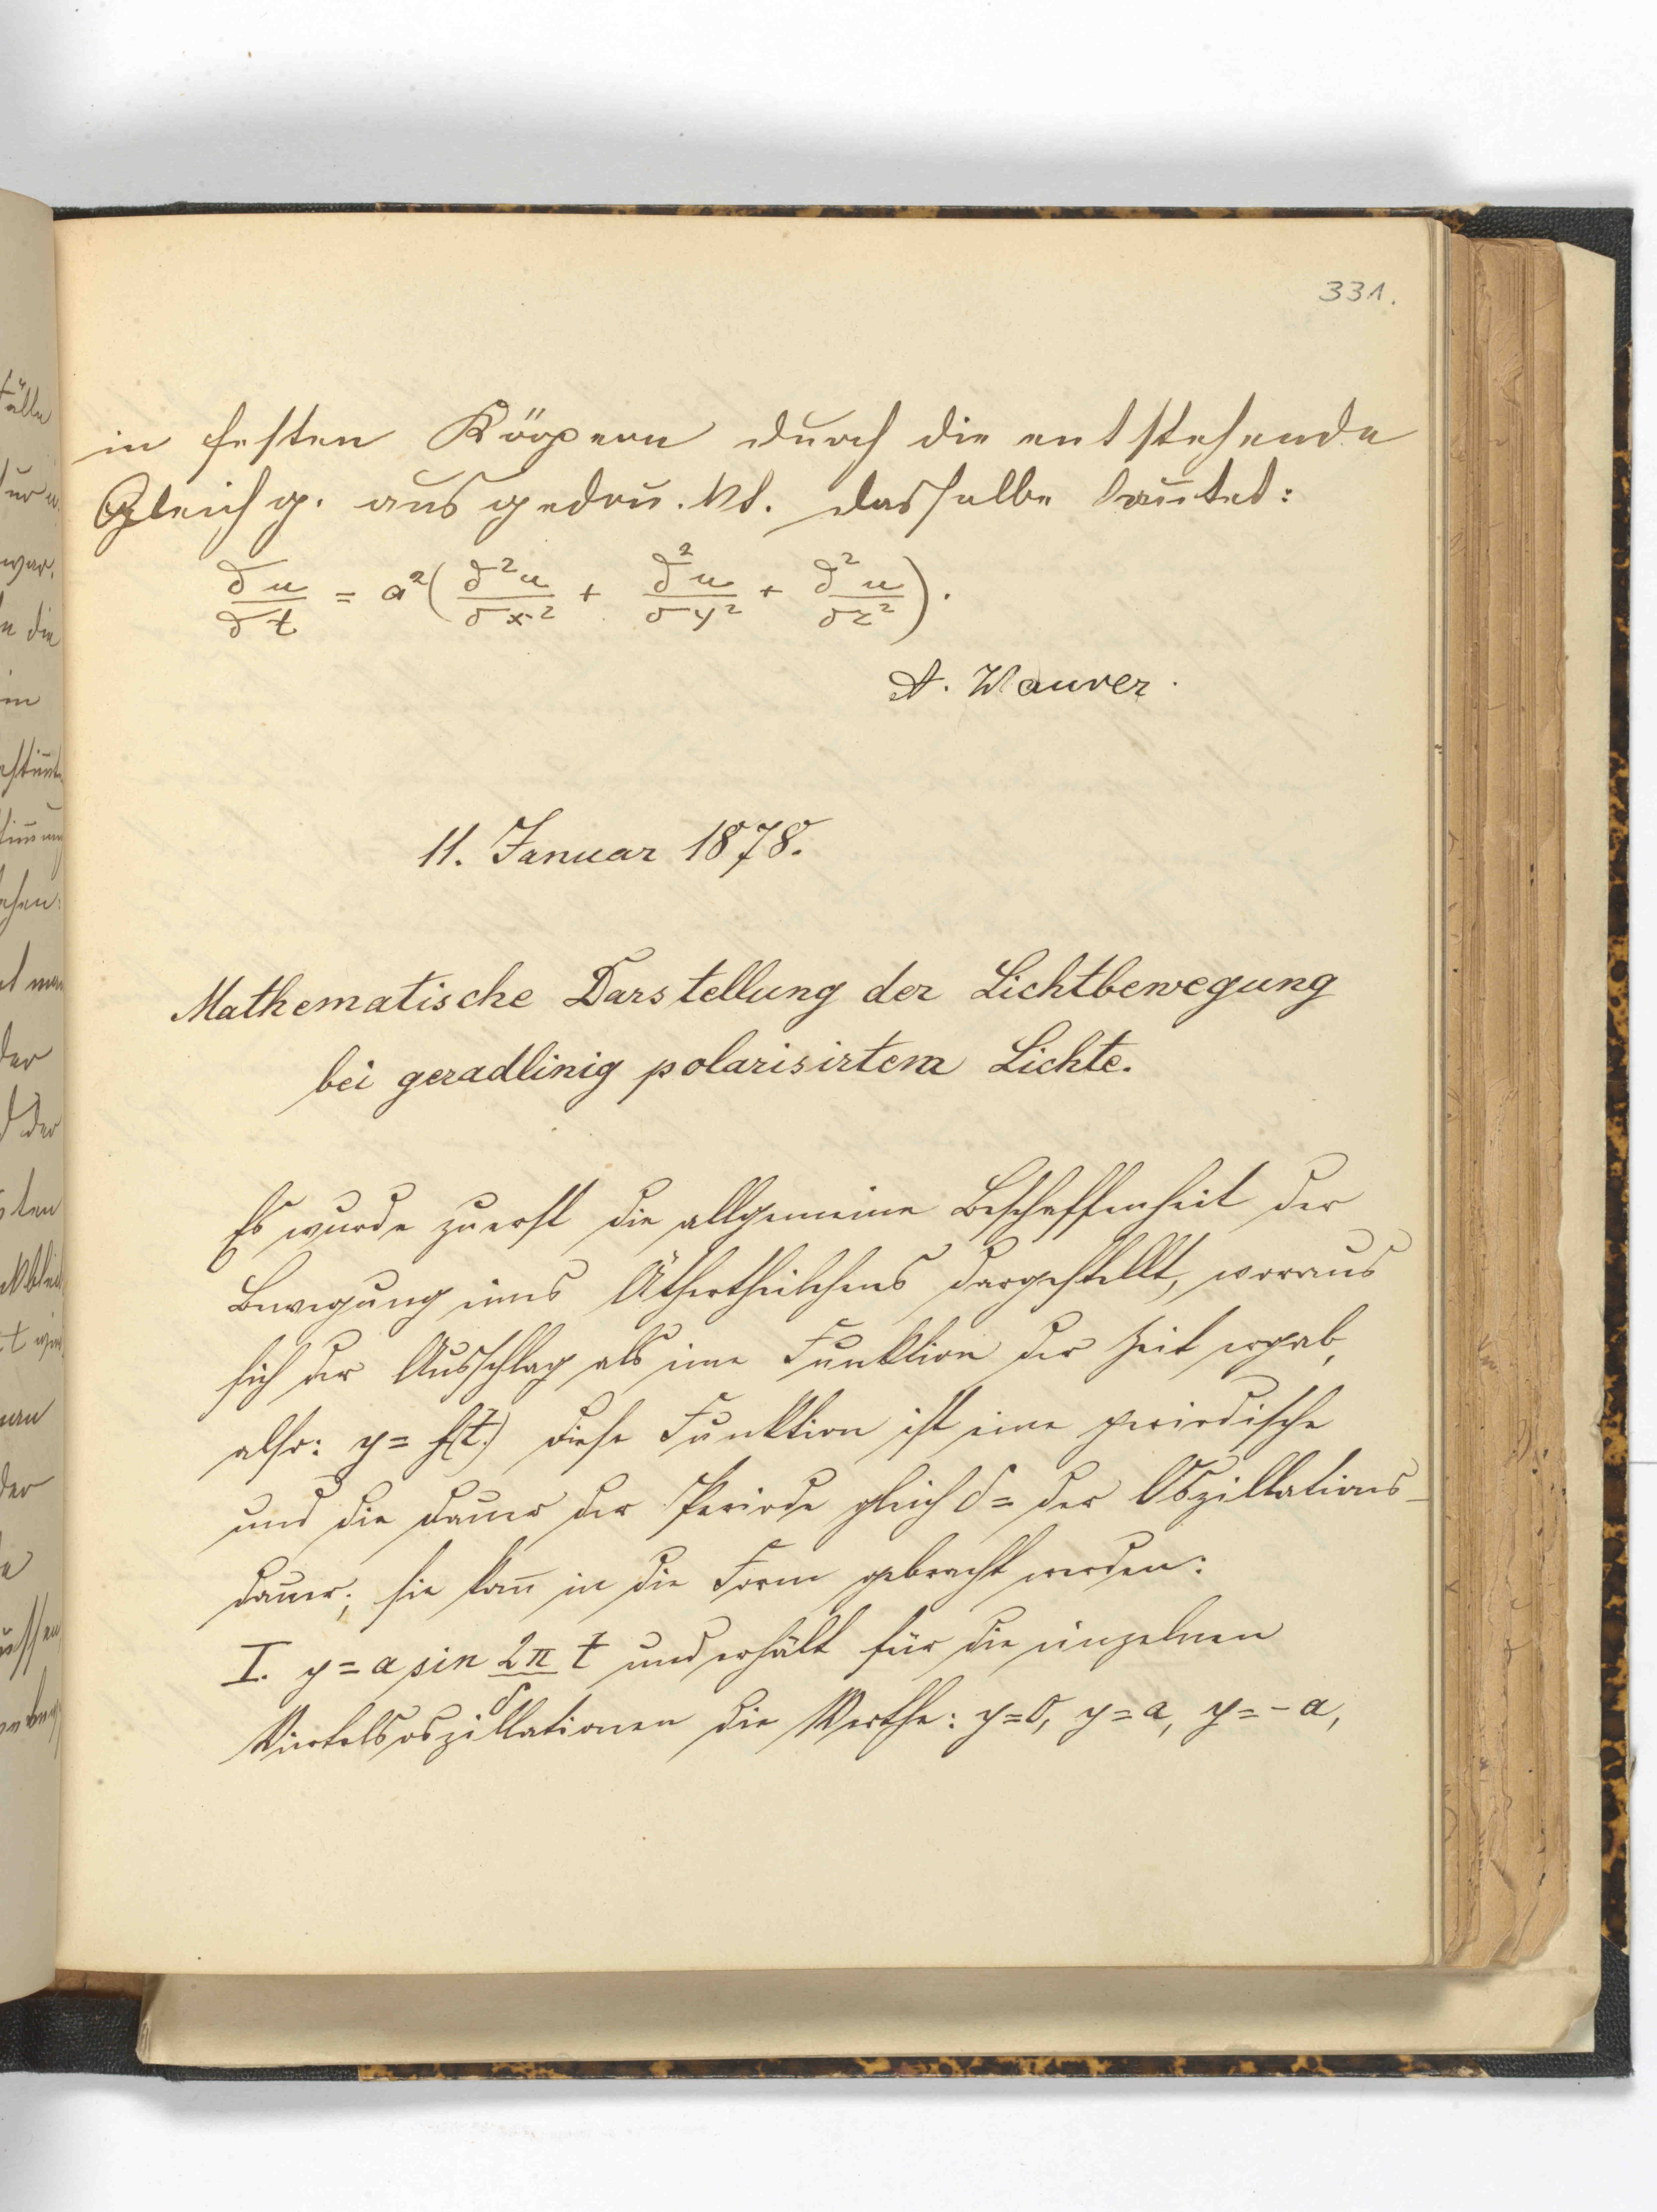 331.
in festen Körpern durch die entstehende
Gleichg. ausgedrückt. dasselbe lautet:
∂u/∂t = a²(∂²u/∂x² + ∂²u/∂y² + ∂²u/∂z²).
A. Maurer.
11. Januar 1878.
Mathematische Darstellung der Lichtbewegung
bei geradlinig polarisirtem Lichte.
Es wurde zuerst die allgemeine Beschaffenheit der
Bewegung eines Äthertheilchens dargestellt, woraus
sich der Ausschlag als eine Funktion der Zeit ergab,
also: y = f(t.) diese Funktion ist eine periodische
und die Dauer der Periode gleich δ = der Oszillations-
dauer; sie kan̄ in die Form gebracht werden:
I. y = a sin 2π/δ t und erhält für die einzelnen
Viertelsoszillationen die Werthe: y=0, y=a, y=-a,